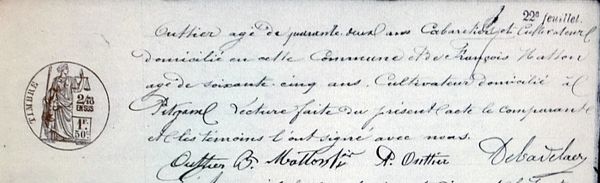 22e feuillet.
Outtier agé de quarante deux ans Cabaretier et Cultivateur
domicilié en cette Commune et de François Matton
agé de soixante cinq ans, Cultivateur domicilié à
Pitgam Lecture faite du présent acte le comparant
et les témoins l'ont signé avec nous.
Outtier B. Matton A. Outtier Debavelaere
TIMBRE
2/10
EN SUS
1 F.
50 c.